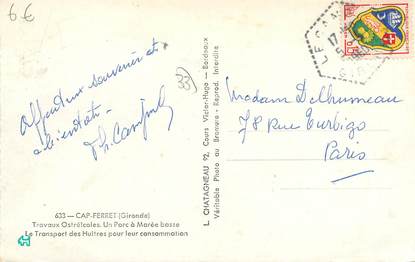 6€
Affectueux souvenir et
a bientôt.
33
633 — CAP-FERRET (Gironde)
Travaux Ostréicoles. Un Parc à Marée basse
Le Transport des Huîtres pour leur consommation
L. CHATAGNEAU 92, Cours Victor-Hugo — Bordeaux
Véritable Photo au Bromure - Reprod. Interdite
Madame Delhumeau
78 Rue Turbigo
Paris